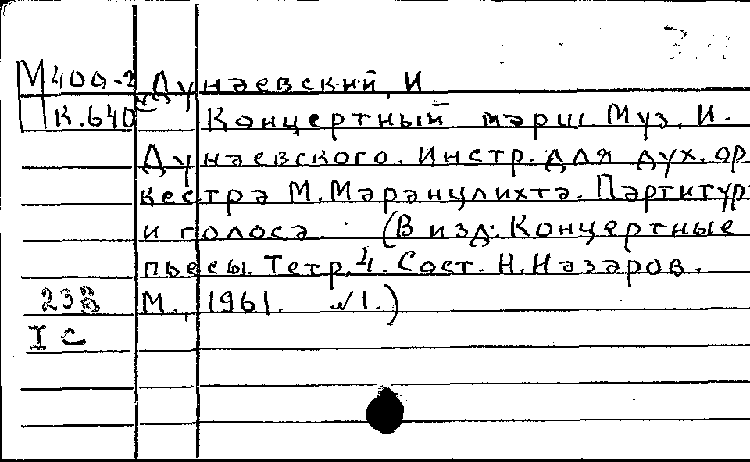 М 400-2 Дунаевский, И
К.640 Концертный марш. Муз. И.
Дунаевского. Инстр. для дух. ор
кестра М. Маранцлихта. Партитур
и голоса. (В изд: Концертные
пьесы. Тетр. 4. Сост. Н. Назаров.
М., 1961. №1.)
I C